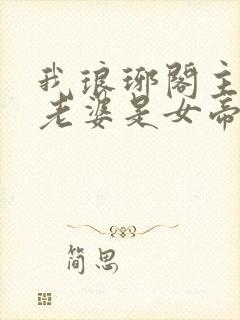 我琅琊阁主
老婆是女帝
简思